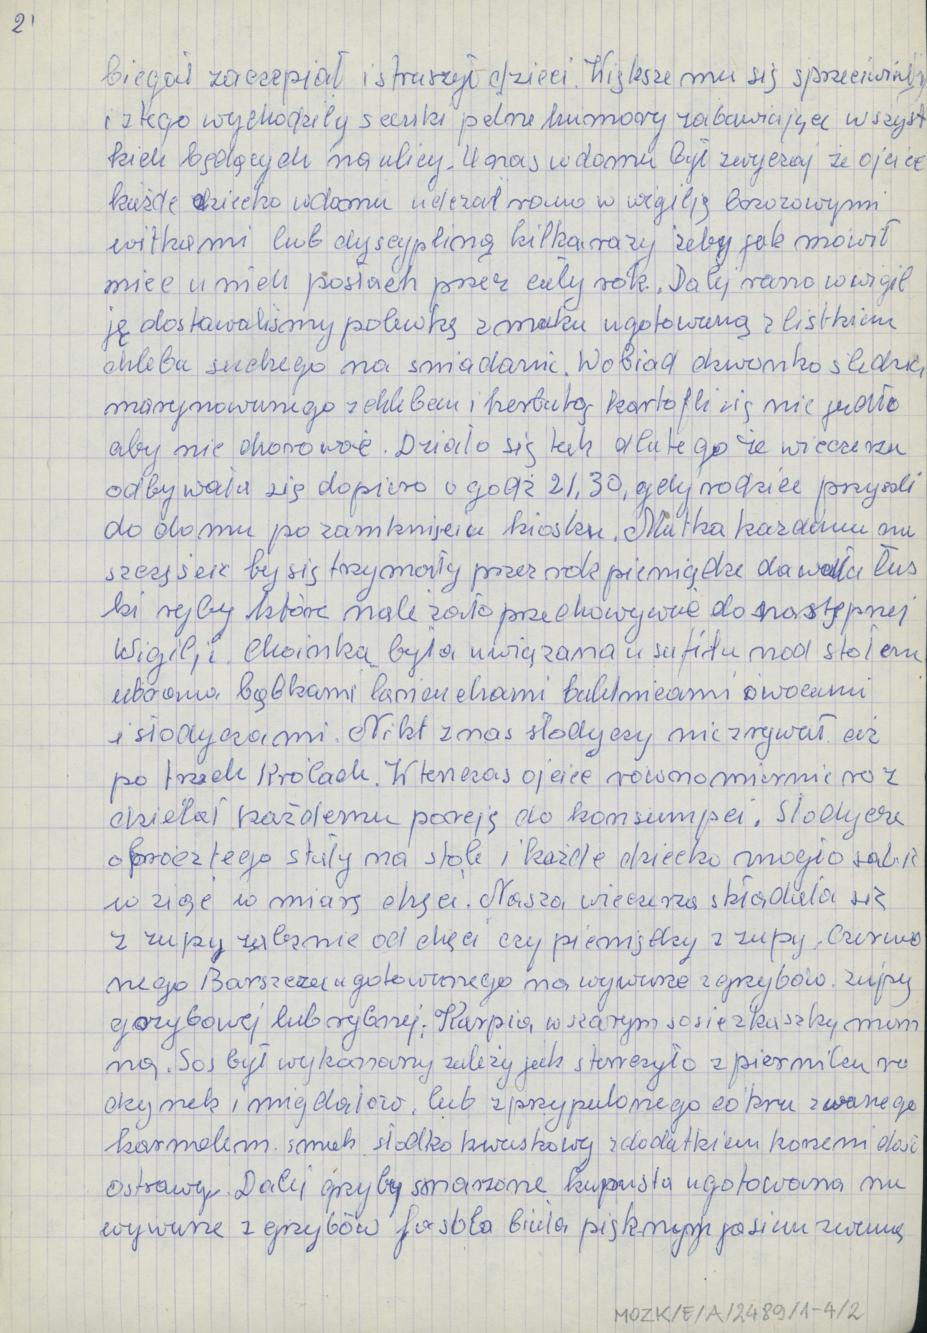 2'
biegał zaczepiał i straszył dzieci. Większe mu się sprzeciwiały
i z tego wychodziły scenki pełne humory zabawiające wszyst
kich będących na ulicy. U nas w domu był zwyczaj że ojciec
każde dziecko w domu uderzał rano w wigilię brzozowymi
witkami lub dyscypliną kilka razy żeby jak mówił
mieć u nich posłach przez cały rok. Dalij rano w wigil
ję dostawaliśmy polewkę z maku ugotowaną z listkiem
chleba suchego na śniadanie. W obiad dzwonko śledzia
marynowanego z chlebem i herbatą kartofli się nie jadło
aby nie chorować. Działo się tak dlatego że wieczerza
odbywała się dopiero o godź 21,30, gdy rodzice przyszli
do domu po zamknięciu kiosku. Matka każdemu na
szczęście by się trzymały przez rok pieniądze dawała łus
ki ryby które należało przechowywać do następnej
Wigilji. Choinka była uwiązana u sufitu nad stołem
ubrana bąbkami łańcuchami owocami
i słodyczami. Nikt z nas słodyczy nie zrywał aż
po trzech Królach. Wtenczas ojciec równomiernie roz
dzielał każdemu porcję do konsumpci. Słodycze
oprócz tego stały na stole i każde dziecko mogło sobie
wziąć w miarę chęci. Nasza wieczerza składała się
z zupy zależnie od chęci czy pieniędzy z zupy. Czerwo
nego Barszczu ugotowanego na wywarze z grzybów. zupy
grzybowej lub rybnej. Karpia w szarym sosie z kaszką man
ną. Sos był wykonany zależy jak starczyło z piernika ro
dzynek i migdałów, lub z przypalonego cokru zwanego
karmelem. smak słodko kwaskowy z dodatkiem korzeni dość
ostrawy. Dalij grzyby smarzone kapusta ugotowana na
wywarze z grzybów fasola biała pięknym jasiem zwaną
MOZK/E/A/2489/1-4/2